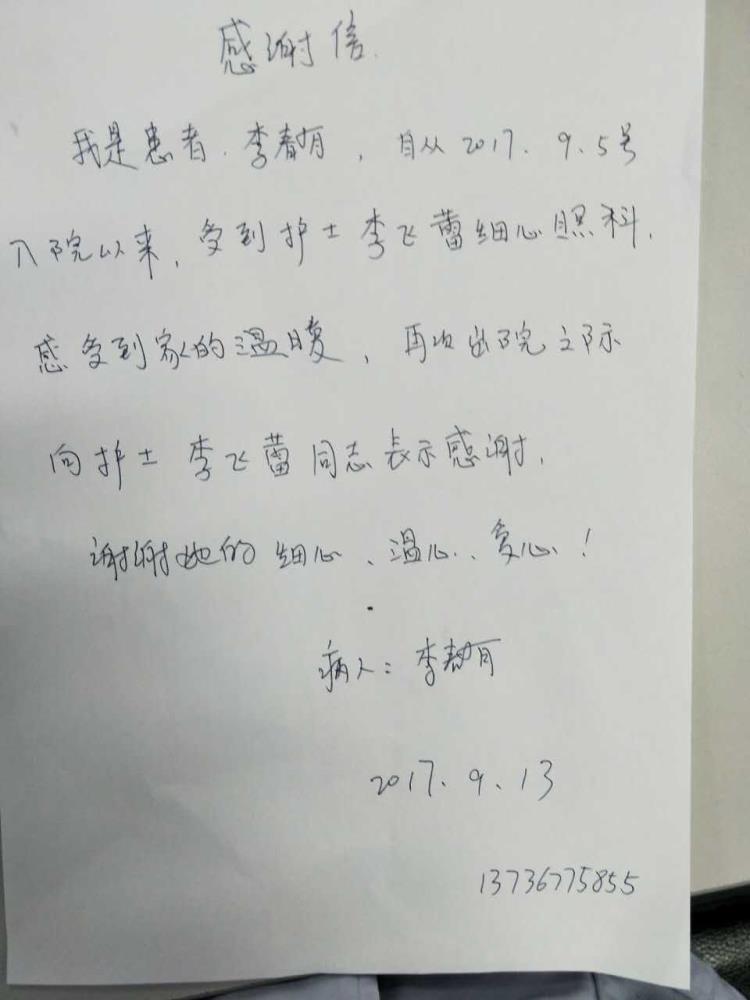 感谢信
我是患者、李静月，自从2017.9.5号
入院以来，受到护士李飞蕾细心照料，
感受到家的温暖，再次出院之际
向护士李飞蕾同志表示感谢，
谢谢她的细心、温心、爱心！
病人：李静月
2017.9.13
13736775855